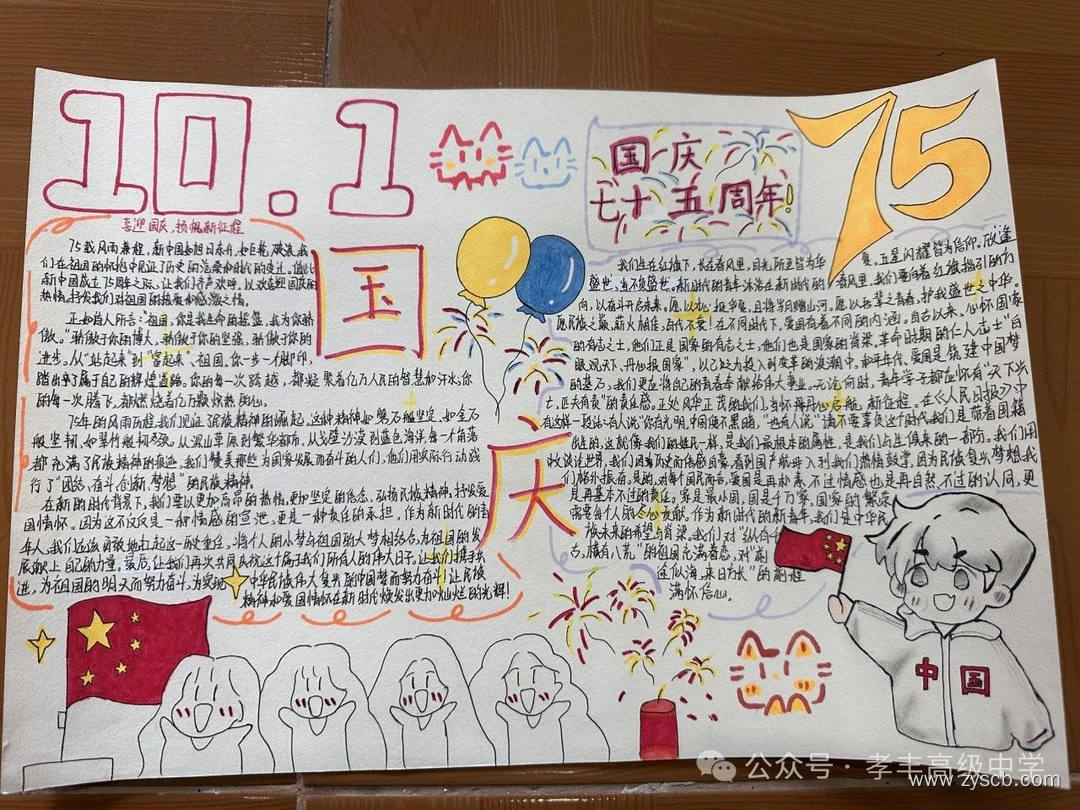 10.1
国庆
七十五周年!
75
国
庆
喜迎国庆,扬帆新征程
75载风雨兼程,新中国如旭日东升,如巨轮破浪,我
们在祖国的怀抱中见证了历史的沧桑和时代的变迁。值此
新中国成立75周年之际,让我们齐声欢呼,以欢迎国庆的
热情,抒发我们对祖国的热爱和感激之情。
正如诗人所言:"祖国,你是我生命的摇篮,我为你骄
傲。"骄傲于你的博大,骄傲于你的坚强,骄傲于你的
进步。从"站起来"到"富起来",祖国,你一步一个脚印,
踏出了属于自己的辉煌道路。你的每一次跨越,都凝聚着亿万人民的智慧和汗水;你
的每一次腾飞,都燃烧着亿万颗炽热的心。
75年的风雨历程,我们见证了民族精神的崛起。这种精神如磐石般坚定,如金石
般坚韧,如翠竹般坚强。从深山草原到繁华都市,从戈壁沙漠到蓝色海洋,每一个角落
都充满了民族精神的痕迹。我们赞美那些为国家发展而奋斗的人们,他们用实际行动践
行了"团结、奋斗、创新、梦想"的民族精神。
在新的时代背景下,我们要以更加高昂的热情,更加坚定的信念,弘扬民族精神,抒发爱
国情怀。因为这不仅仅是一种情感的宣泄,更是一种责任的承担。作为新时代的青
年人,我们应该勇敢地扛起这一历史重任,将个人的小梦与祖国的大梦相结合,为祖国的发
展献上自己的力量。最后,让我们再次共同庆祝这个属于我们所有人的伟大日子。让我们携手共
进,为祖国的明天而努力奋斗,为实现中华民族伟大复兴的中国梦而努力奋斗!让民族
精神和爱国情怀在新时代焕发出更加灿烂的光辉!
我们生在红旗下,长在春风里,目光所至皆为华夏,五星闪耀皆为信仰。欣逢
盛世,当不负盛世。新时代的青年沐浴在新时代的春风里,我们要向着红旗指引的方
向,以奋斗开启未来。愿以寸心投华夏,且将岁月赠山河。愿以吾辈之青春,护我盛世之中华。
愿民族之巅,薪火相传,百代不衰!在不同时代下,爱国有着不同的内涵。自古以来,心怀国家
的有志之士,他们正是国家的有志之士,他们也是国家的脊梁。革命时期的仁人志士"白
眼观天下,丹心报国家",以己之力投入到变革的浪潮中。和平年代,爱国是筑建中国梦
的基石,我们更应将自己的青春奉献给伟大事业。无论何时,青年学子都应怀有"天下兴
亡,匹夫有责"的责任感。正处风华正茂的我们,当怀揣丹心启航新征程。在《人民日报》中
有这样一段话:有人说"你有光明,中国便不黑暗。"也有人说"请不要辜负这个时代"我们是带着国籍
出生的,这就像我们的姓氏一样,是我们最根本的属性,是我们与生俱来的一部分。我们用
收获论世界,我们因为历史而伤感自豪,看到国产航母入列我们热情鼓掌,因为民族复兴梦想我
们格外振奋。是的,对每个国民而言,爱国是再朴素不过情感也是再自然不过的认同,更
是再基本不过的责任。家是最小国,国是千万家,国家的繁荣
需要每个人的尽心贡献。作为新时代的新青年,我们是中华民
族未来的希望与脊梁。我们对"纵有千
古,横有八荒"的祖国充满眷恋,对"前
途似海,来日方长"的前程
满怀信心。
中国
公众号·孝丰高级中学
www.zyscb.com